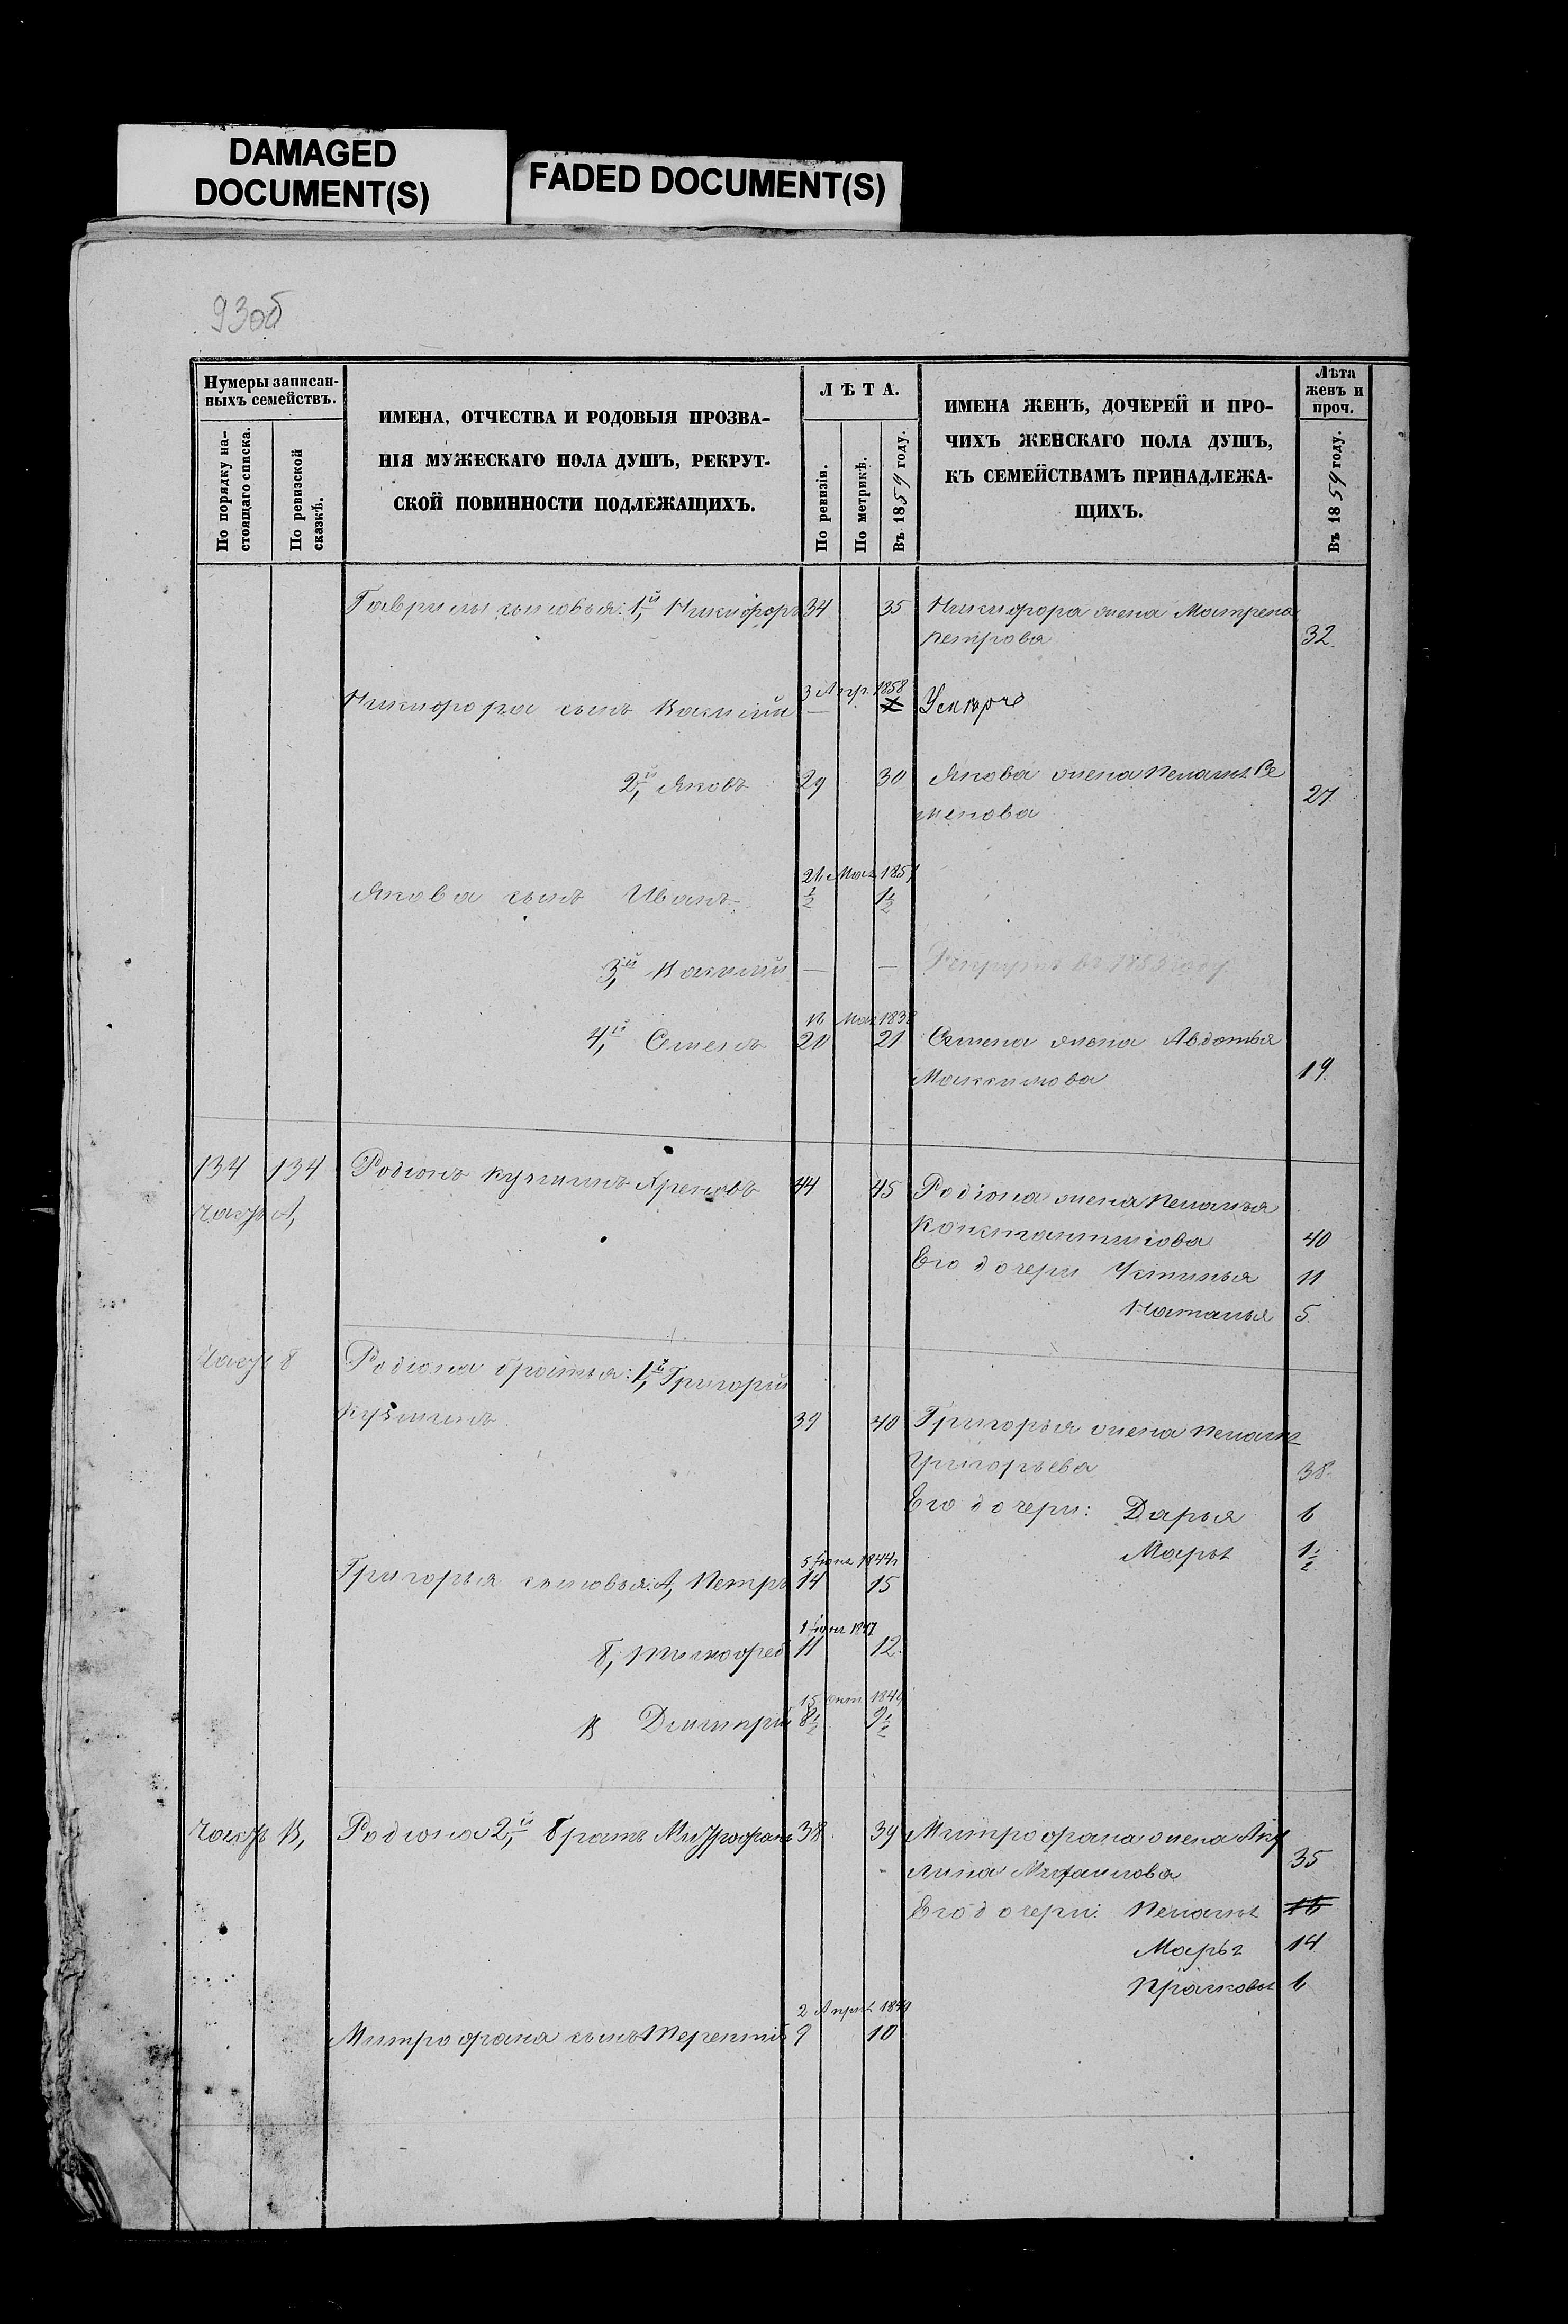 DAMAGED
DOCUMENT(S)
FADED DOCUMENT(S)
93об
Нумеры записан-
ныхъ семействъ.
По порядку на-
стоящаго списка.
По ревизской
сказкѣ.
ИМЕНА, ОТЧЕСТВА И РОДОВЫЯ ПРОЗВА-
НІЯ МУЖЕСКАГО ПОЛА ДУШЪ, РЕКРУТ-
СКОЙ ПОВИННОСТИ ПОДЛЕЖАЩИХЪ.
ЛѢТА.
По ревизіи.
По метрикѣ.
Въ 1859 году.
ИМЕНА ЖЕНЪ, ДОЧЕРЕЙ И ПРО-
ЧИХЪ ЖЕНСКАГО ПОЛА ДУШЪ,
КЪ СЕМЕЙСТВАМЪ ПРИНАДЛЕЖА-
ЩИХЪ.
Лѣта
женъ и
проч.
Въ 1859 году.
Гаврилы сыновья: 1й, Никифоръ 34 35 Никифора жена Матрена
Петрова 32.
3 Апр. 1858
Никифора сынъ Василій —
2й, Яковъ 29 30 Якова жена Пелагѣя Се
менова 27.
21 Мая 1857
Якова сынъ Иванъ ½ 1½
3й, Василій — — Рекрутъ въ 1853 году
Мая 1838
4й, Семенъ 20 21 Семена жена Авдотья
Максимова 19.
134 134 Родіонъ Кузминъ 44 45 Родіона жена Пелагѣя
часть А, Константинова 40
Его дочери Устинья 11
Наталья 5.
часть Б Родіона братья: 1й, Григорій
Кузминъ 39 40 Григорья жена Пелагѣя
Григорьева 38.
Его дочери: Дарья 6
Марья 1½
5 1844
Григорья сыновья: А, Петръ 14 15
1 1847
Б, Тимофей 11 12.
15 Окт. 1849
В Дмитрій 8½ 9½
часть В, Родіона 2й, братъ Митрофанъ 38. 39 Митрофана жена Аку
лина Михаилова 35
Его дочери: Пелагѣя 16
Марья 14
Прасковья 6
2 Апрѣл 1849
Митрофана сынъ Терентій 9 10